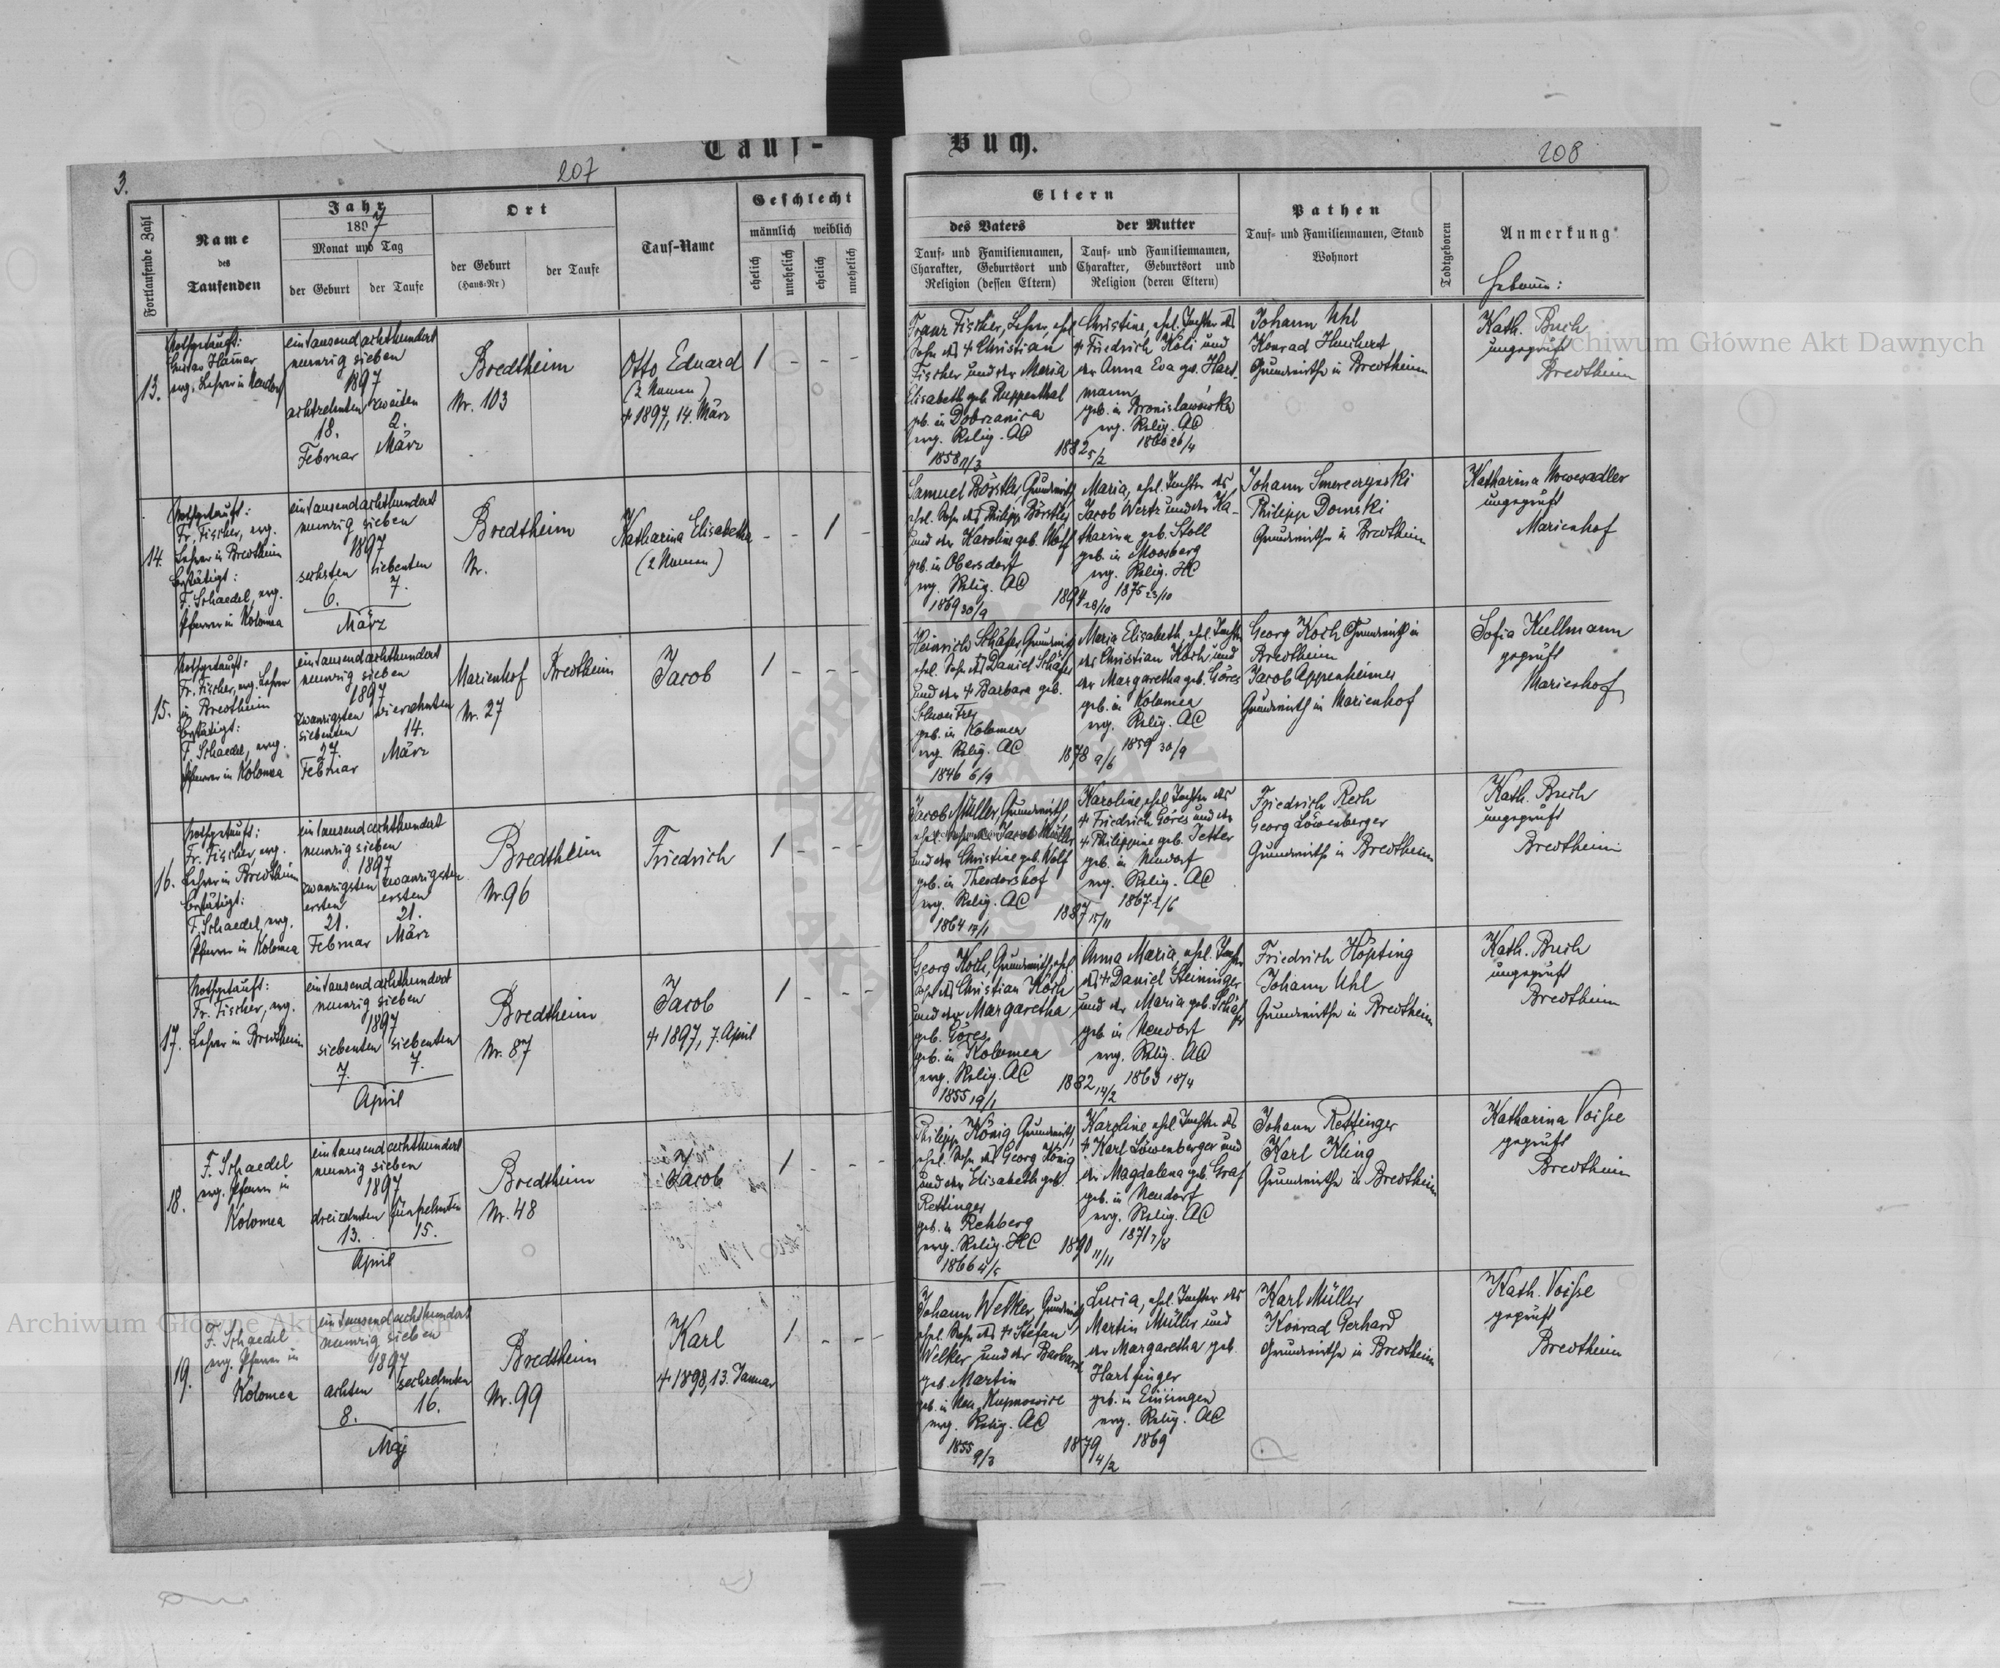 Tauf-
Buch.
3.
207
208
Fortlaufende Zahl
Name
des
Taufenden
Jahr
1897
Monat und Tag
der Geburt
der Taufe
Ort
der Geburt
(Haus-Nr)
der Taufe
Tauf-Name
Geschlecht
männlich
weiblich
ehelich
unehelich
ehelich
unehelich
Eltern
des Vaters
Tauf- und Familiennamen,
Charakter, Geburtsort und
Religion (dessen Eltern)
der Mutter
Tauf- und Familiennamen,
Charakter, Geburtsort und
Religion (deren Eltern)
Pathen
Tauf- und Familiennamen, Stand
Wohnort
Todtgeboren
Anmerkung
Hebamme:
13.
Nothgetauft:
Gustav
evg. Lehrer in Neudorf
eintausendachthundert
neunzig sieben
1897
achtzehnten
18.
Februar
zweiten
2.
März
Bredtheim
Nr. 103
Otto Eduard
(2 Namen)
† 1897, 14. März
1 - - -
Franz Fischer, Lehrer, ehel.
Sohn des † Christian
Fischer und der Maria
Elisabeth geb. Ruppenthal
geb. in Dobrzanica
evg. Relig. AC
1858 1/3
1882 5/2
Christine, ehel. Tochter des
† Friedrich Koli und
der Anna Eva geb. Hart-
mann
geb. in Bronislawowka
evg. Relig. AC
1860 26/4
Johann Uhl
Konrad
Grundwirthe in Bredtheim
Kath. Buch
ungeprüft
Bredtheim
14.
Nothgetauft:
Fr. Fischer, evg.
Lehrer in Bredtheim
bestätigt:
F. Schaedel, evg.
Pfarrer in Kolomea
eintausendachthundert
neunzig sieben
1897
sechsten
6.
siebenten
7.
März
Bredtheim
Nr.
Katharina Elisabetha
(2 Namen)
- - 1 -
Samuel Börstler, Grundwirth,
ehel. Sohn des Philipp Börstler
und der Karoline geb. Wolf
geb. in Obersdorf
evg. Relig. AC
1869 30/9
1894 28/10
Maria, ehel. Tochter des
Jacob Wertz und der Ka-
tharina geb. Stoll
geb. in Moosberg
evg. Relig. HC
1875 23/10
Johann Smereczynski
Philipp Domski
Grundwirthe in Bredtheim
Katharina Nowesadler
ungeprüft
Marienhof
15.
Nothgetauft:
Fr. Fischer, evg. Lehrer
in Bredtheim
bestätigt:
F. Schaedel, evg.
Pfarrer in Kolomea
eintausendachthundert
neunzig sieben
1897
zwanzigsten
siebenten
27.
Februar
vierzehnten
14.
März
Marienhof
Nr. 27
Bredtheim
Jacob
1 - - -
Heinrich Schäfer, Grundwirth,
ehel. Sohn des Daniel Schäfer
und der † Barbara geb.
geb. in Kolomea
evg. Relig. AC
1846 6/9
1878 9/6
Maria Elisabeth, ehel. Tochter
des Christian Koch und
der Margaretha geb. Göres
geb. in Kolomea
evg. Relig. AC
1859 30/9
Georg Koch Grundwirth in
Bredtheim
Jacob Appenheimer
Grundwirth in Marienhof
Sofia Kullmann
geprüft
Marienhof
16.
Nothgetauft:
Fr. Fischer, evg.
Lehrer in Bredtheim
bestätigt:
F. Schaedel, evg.
Pfarrer in Kolomea
eintausendachthundert
neunzig sieben
1897
zwanzigsten
ersten
21.
Februar
zwanzigsten
ersten
21.
März
Bredtheim
Nr. 96
Friedrich
1 - - -
Jacob Müller, Grundwirth,
ehel. Sohn des Jacob Müller
und der Christine geb. Wolf
geb. in Theodorshof
evg. Relig. AC
1864 17/1
1887 15/11
Karoline, ehel. Tochter des
† Friedrich Göres und der
† Philippine geb. Tetter
geb. in Neudorf
evg. Relig. AC
1867 2/6
Friedrich Rech
Georg Löwenberger
Grundwirthe in Bredtheim
Kath. Buch
ungeprüft
Bredtheim
17.
Nothgetauft:
Fr. Fischer, evg.
Lehrer in Bredtheim
eintausendachthundert
neunzig sieben
1897
siebenten
7.
siebenten
7.
April
Bredtheim
Nr. 87
Jacob
† 1897, 7. April
1 - - -
Georg Koch, Grundwirth, ehel.
Sohn des Christian Koch
und der Margaretha
geb. Göres
geb. in Kolomea
evg. Relig. AC
1855 19/1
1882 14/2
Anna Maria, ehel. Tochter
des † Daniel Heinninger
und der Maria geb. Schäfer
geb. in Neudorf
evg. Relig. AC
1863 18/4
Friedrich Höpting
Johann Uhl
Grundwirthe in Bredtheim
Kath. Buch
ungeprüft
Bredtheim
18.
F. Schaedel
evg. Pfarrer in
Kolomea
eintausendachthundert
neunzig sieben
1897
dreizehnten
13.
fünfzehnten
15.
April
Bredtheim
Nr. 48
Jacob
1 - - -
Philipp König, Grundwirth,
ehel. Sohn des Georg König
und der Elisabeth geb.
Rettinger
geb. in Rehberg
evg. Relig. HC
1866 4/5
1890 11/11
Karoline, ehel. Tochter des
† Karl Löwenberger und
der Magdalena geb. Graf
geb. in Neudorf
evg. Relig. AC
1871 7/8
Johann Rettinger
Karl Kling
Grundwirthe in Bredtheim
Katharina Voisse
geprüft
Bredtheim
19.
F. Schaedel
evg. Pfarrer in
Kolomea
eintausendachthundert
neunzig sieben
1897
achten
8.
sechzehnten
16.
Maj
Bredtheim
Nr. 99
Karl
† 1898, 13. Januar
1 - - -
Johann Welker, Grundwirth,
ehel. Sohn des † Stefan
Welker und der Barbara
geb. Martin
geb. in Neu Kupnowice
evg. Relig. AC
1855 9/3
1879 4/2
Lucia, ehel. Tochter des
Martin Müller und
der Margaretha geb.
Hartfinger
geb. in Einsingen
evg. Relig. AC
1869
Karl Müller
Konrad Gerhard
Grundwirthe in Bredtheim
Kath. Voisse
geprüft
Bredtheim
Archiwum Główne Akt Dawnych
Archiwum Główne Akt Dawnych